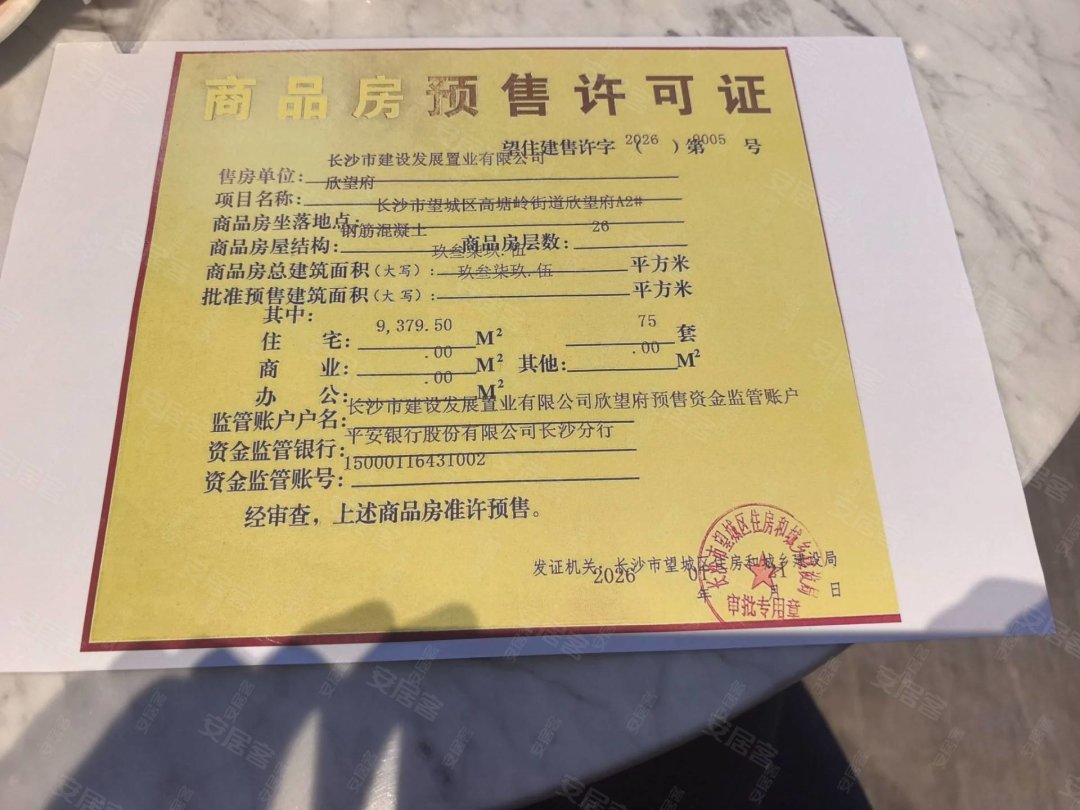 商品房预售许可证
望住建售许字（2026）第0005号
售房单位：长沙市建设发展置业有限公司
项目名称：欣望府
商品房坐落地点：长沙市望城区高塘岭街道欣望府A2#
商品房屋结构：钢筋混凝土 商品房层数：26
商品房总建筑面积（大写）：玖叁柒玖.伍 平方米
批准预售建筑面积（大写）：玖叁柒玖.伍 平方米
其中：
住宅：9,379.50 M² 75 套
商业：.00 M² 其他：.00 M²
办公：.00 M²
监管账户户名：长沙市建设发展置业有限公司欣望府预售资金监管账户
资金监管银行：平安银行股份有限公司长沙分行
资金监管账号：15000116431002
经审查，上述商品房准许预售。
发证机关：长沙市望城区住房和城乡建设局
2026年 月21日
长沙市望城区住房和城乡建设局
审批专用章
安居客